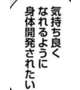 気持ち良く
なれるように
身体開発されたい